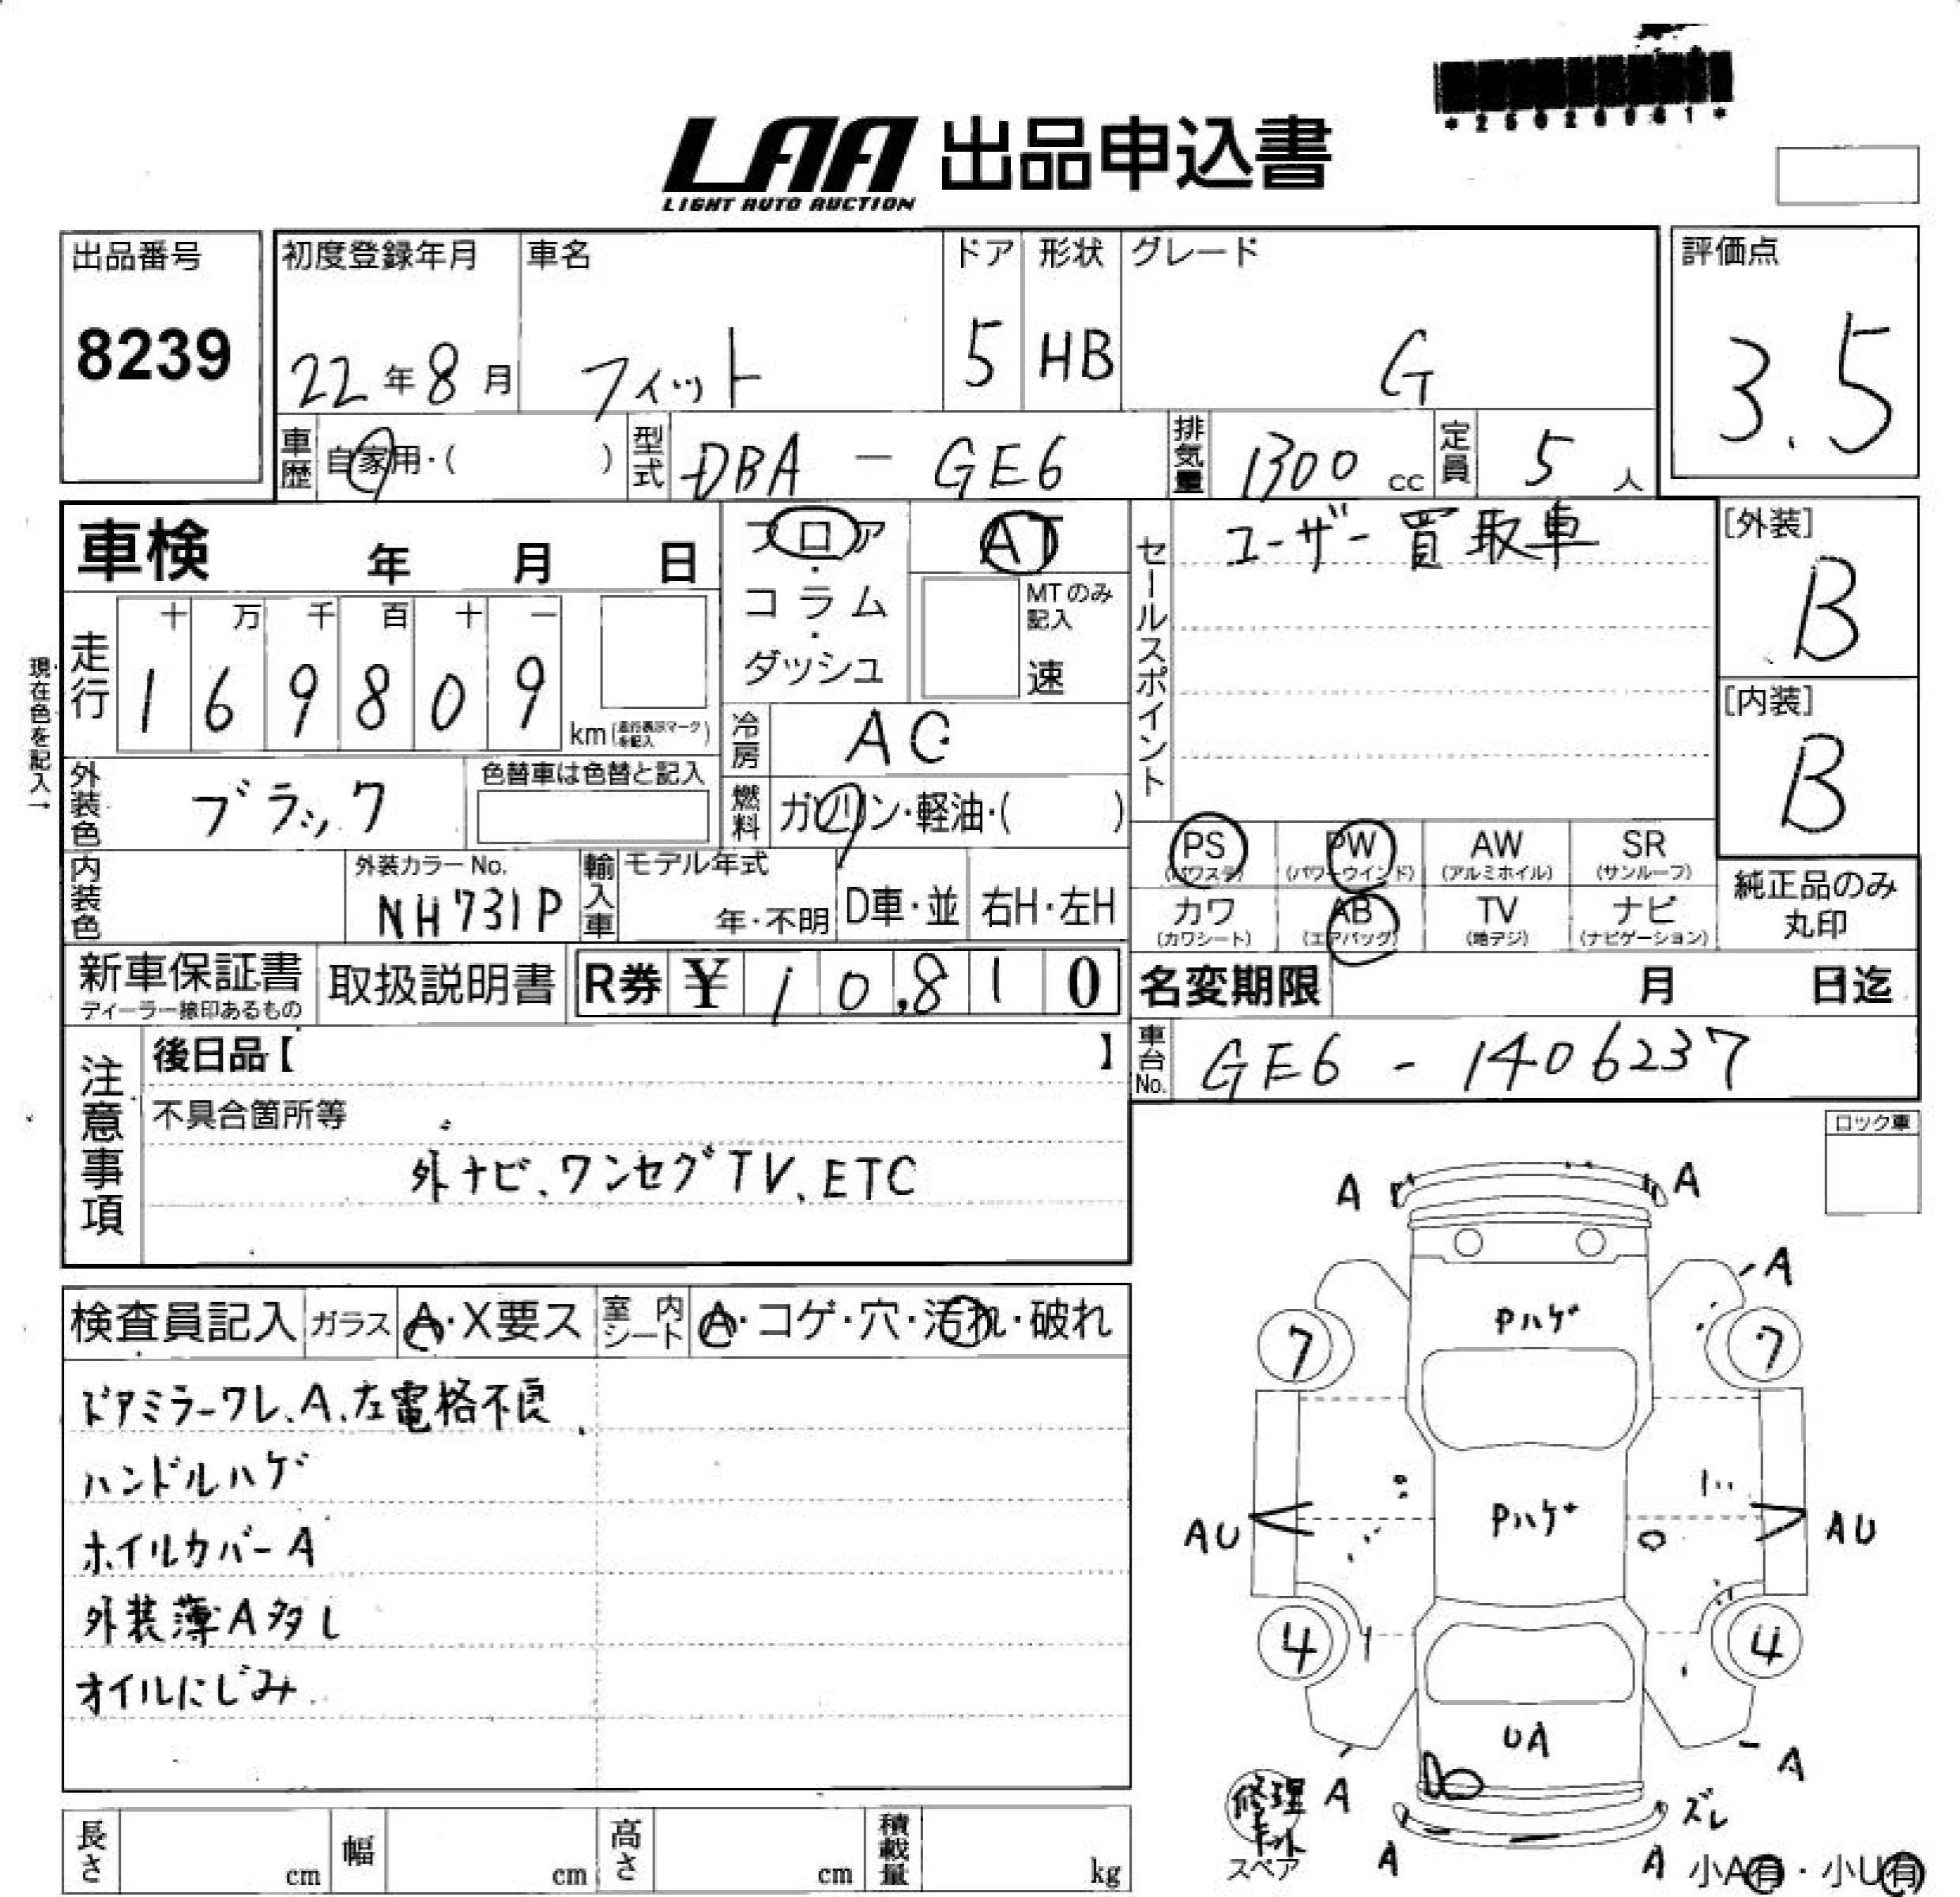 *25028061*
LAA 出品申込書
LIGHT AUTO AUCTION
出品番号
8239
初度登録年月
22年8月
車名
フィット
ドア
5
形状
HB
グレード
G
評価点
3.5
車歴
自家用・( )
型式
DBA - GE6
排気量
1300 cc
定員
5 人
車検 年 月 日
フロア
・
コラム
・
ダッシュ
AT
MTのみ
記入
速
セールスポイント
ユーザー買取車
[外装]
B
[内装]
B
現在色を記入→
走行
十 万 千 百 十 一
1 6 9 8 0 9
km(走行表示マークを記入)
冷房
AC
外装色
ブラック
色替車は色替と記入
燃料
ガソリン・軽油・( )
PS
(パワステ)
PW
(パワーウインド)
AW
(アルミホイル)
SR
(サンルーフ)
カワ
(カワシート)
AB
(エアバッグ)
TV
(地デジ)
ナビ
(ナビゲーション)
純正品のみ
丸印
内装色
外装カラーNo.
NH731P
輸入車
モデル年式
年・不明
D車・並
右H・左H
新車保証書
ディーラー捺印あるもの
取扱説明書
R券 ¥ 10,810
名変期限 月 日迄
車台No.
GE6 - 1406237
注意事項
後日品【 】
不具合箇所等
外ナビ、ワンセグTV、ETC
ロック車
検査員記入
ガラス
A・X要ス
室内シート
A・コゲ・穴・汚れ・破れ
ドアミラーワレ、A、左電格不良
ハンドルハゲ
ホイルカバーA
外装薄A多し
オイルにじみ
A A
A
Pハゲ
7 7
Pハゲ
AU AU
4 4
UA
A A
ズレ
A A
修理キット
スペア
小A有・小U有
長さ cm
幅 cm
高さ cm
積載量 kg